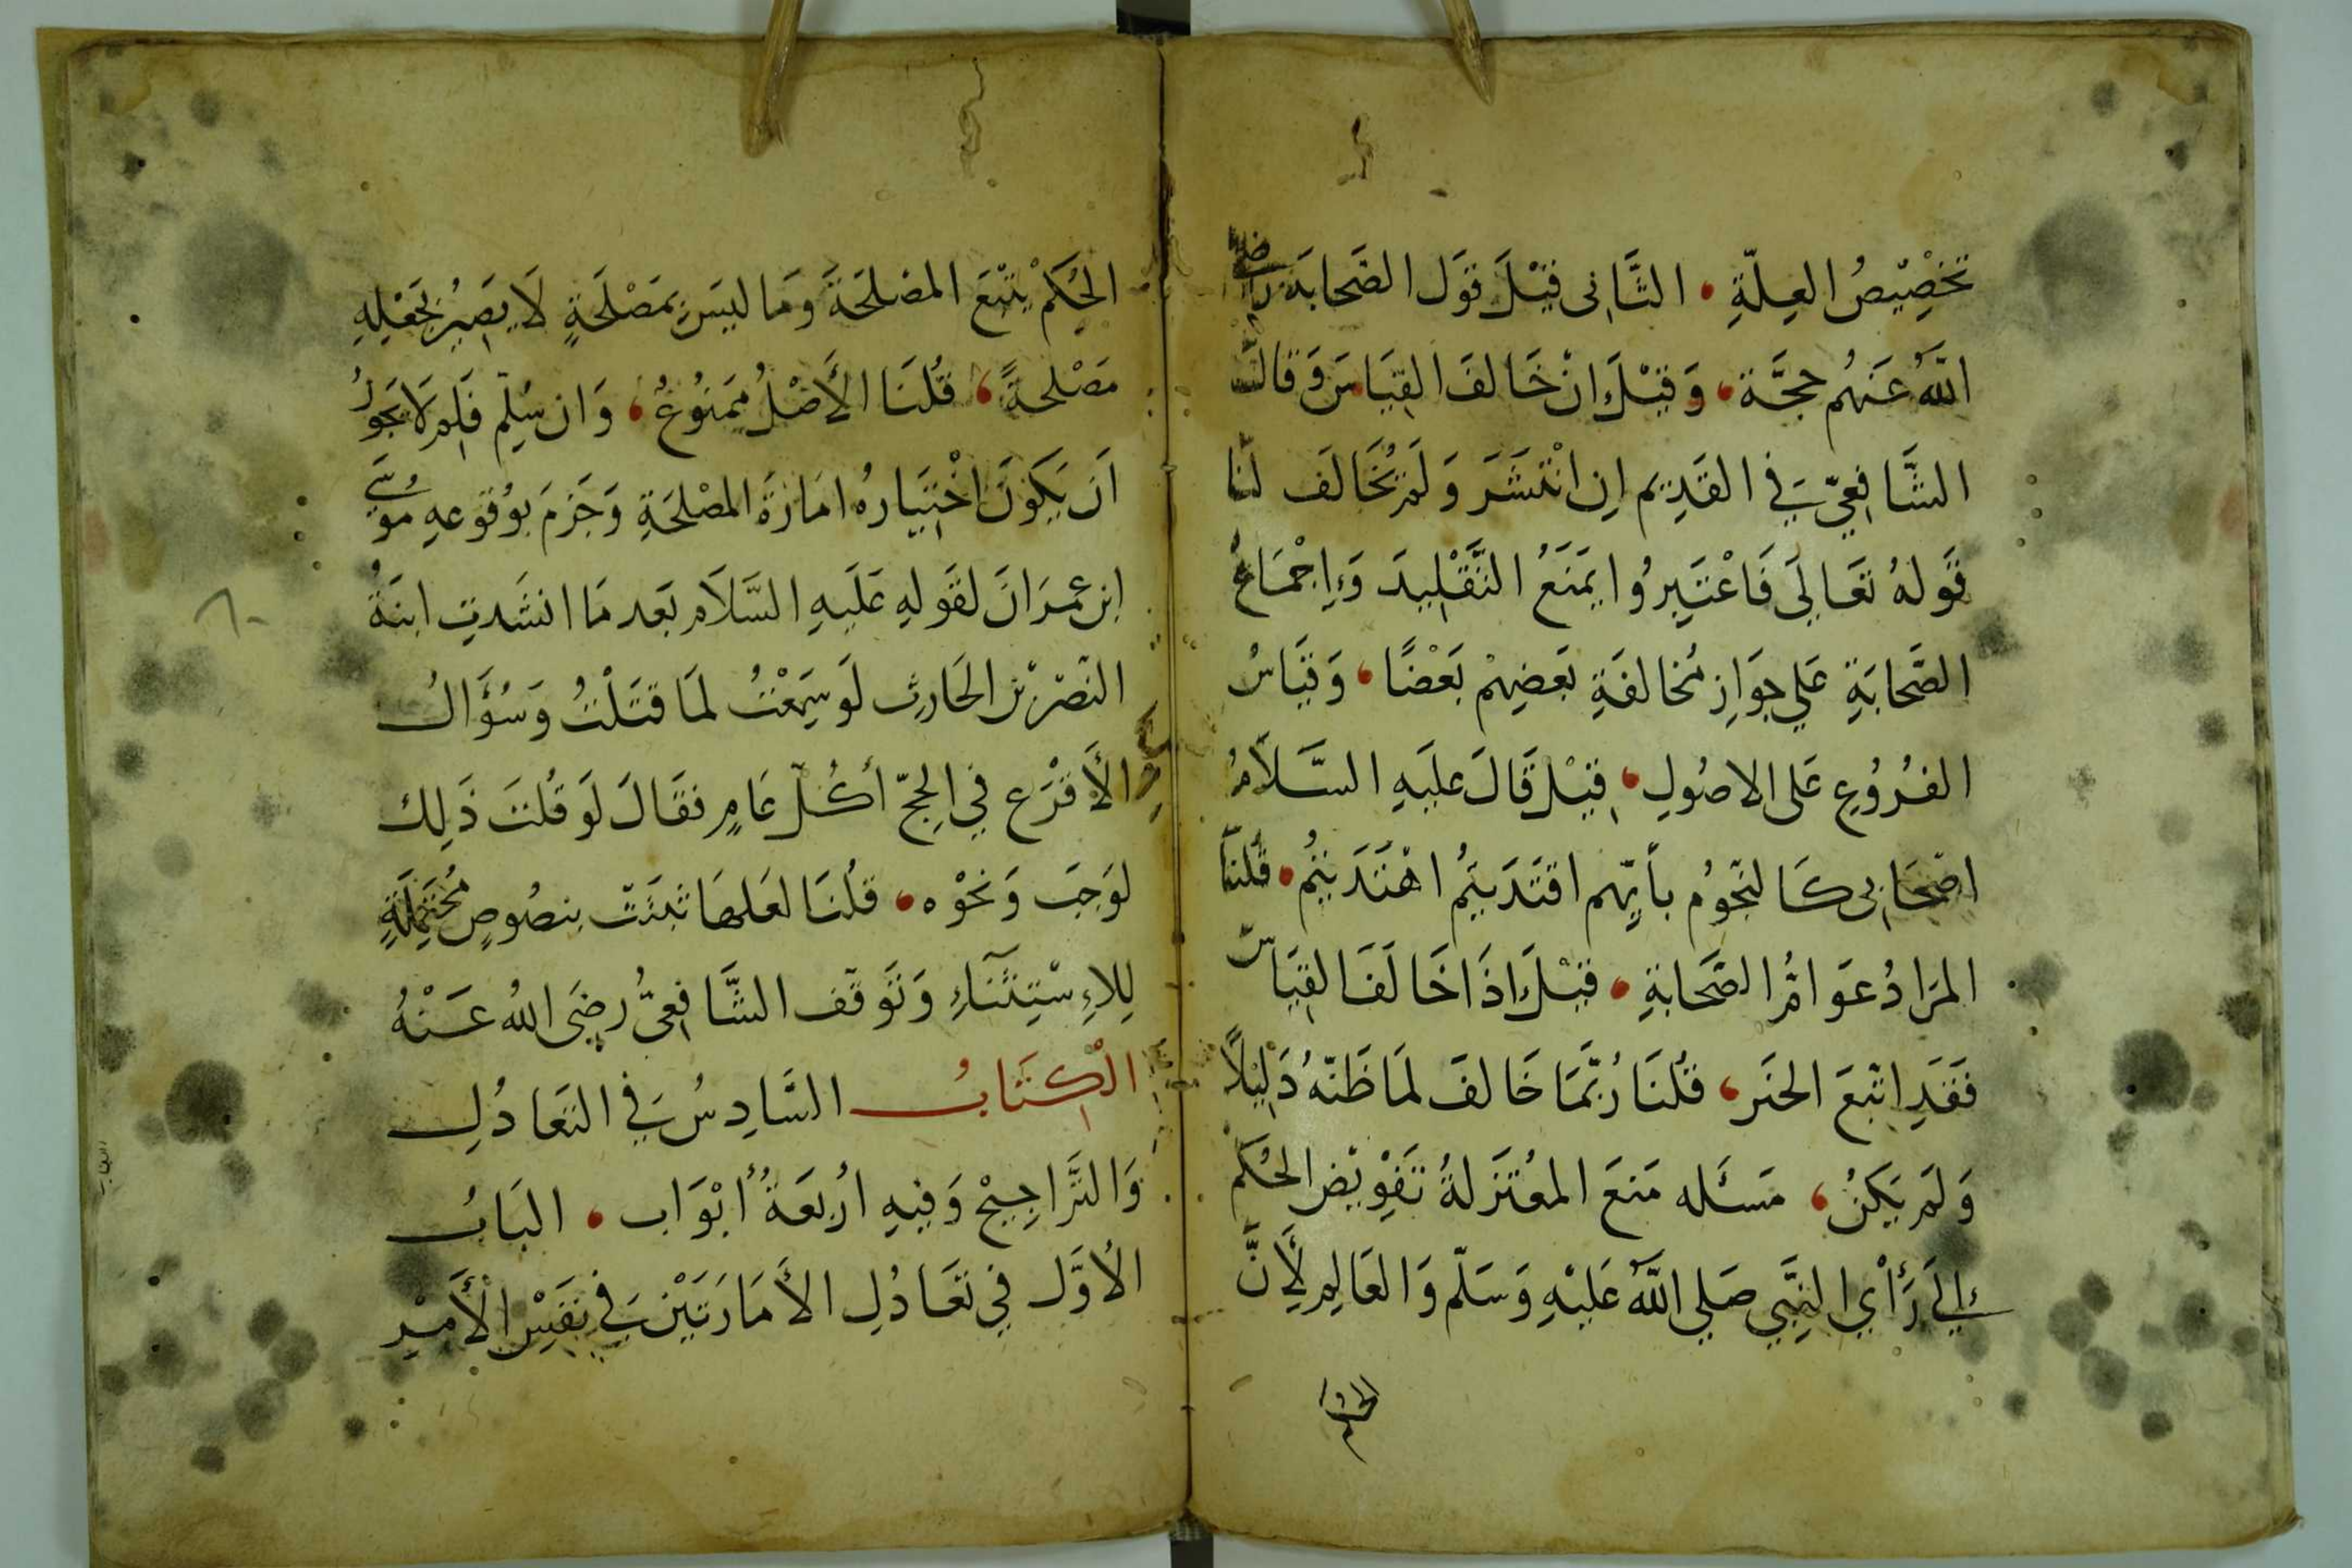 تخْصِيْصُ العِلّةِ • الثَّانِى قيْلَ قوَل الصَّحابَة رضى
اللّهُ عَنهُم حجَّة، وَقيْلَ انْ خَالفَ القِيَاسَ وَقالَ
الشَّافِعِيّ فِي القَدِيم اِن انْتشَرَ وَلَمْ يُخَالَف لنَا
قَولهُ تعَالَى فَاعْتَبِرُوا يمَنَعُ التَّقْلِيدَ وَإِجْمَاعُ
الصَّحابَةِ عَلي جوَازِ مُخالفَةِ بَعضِهمْ بَعْضًا، وَقيَاسُ
الفرُوُعِ عَلى الاصُولِ، قِيْلَ قَالَ عليَهِ السَّلاَمُ
اصْحَابِى كَالنجّوُم بأَيّهِم اقتَدَيتُم اهْتَدَيتُم • قُلنَا
المرَادُ عَوَامُّ الصَّحَابةِ • قيْلَ اذَا خَالَفَ القِيَاسَ
فَقَدِ اتّبعَ الخبَر، قُلنَا رُبَّمَا خَالفَ لمَا ظَنّهُ دَلِيْلاً
وَلَم يَكنُ، مَسئَله مَنعَ المعُتَزلةُ تَفْوِيْض الحُكم
إِلَى رَأْيِ النِبَّي صَلي اللّهُ عَليْهِ وَسَلّم وَالعَالِم لِأَنَّ
الحكم
الحُكَمْ يتْبَعَ المصْلحَةَ وَمَا ليسَ بمَصْلَحَةٍ لَا يَصِيْرُ بجَعْلِهِ
مَصْلحةً، قُلنَا الأَصْلُ ممَنُوُعُ، وَان سُلِّم فَلِم لَا يَجوُز
اَن يَكوُنَ اخْتيَارهُ امَارَةَ المصْلحَةِ وَجَزمَ بوُقوعهِ موُسَى
ابن عمرَانَ لقَولهِ عَلَيهِ السَّلَام بَعد مَا انشَدتِ ابنَةُ
النّضر بن الحَارِث لَو سَمِعْتُ لمَا قتَلْتُ وَسُؤَالُ
الأَقرَع فِي الحِجّ أكُلّ عَامٍ فقَالَ لَو قُلتَ ذَلِك
لوَجبَ وَنحْوْه، قلُنَا لعَلهَا ثبتَتْ بنصُوصٍ مُحتَمِلَةٍ
لِلاِسْتِثنَآءِ وَتَوقّف الشَّافِعِيُّ رضِيَ اللهُ عَنْهُ
الْكِتَابُ السَّادِسُ فِي التعَادُلِ
وَالترَّاجِيْحْ وَفِيهِ ارُبعَةُ أبْوَاب، البَابُ
الأوّل فِي تعَادُلِ الأمَارَتيْن فِي نَفسِ الْأَمْرِ